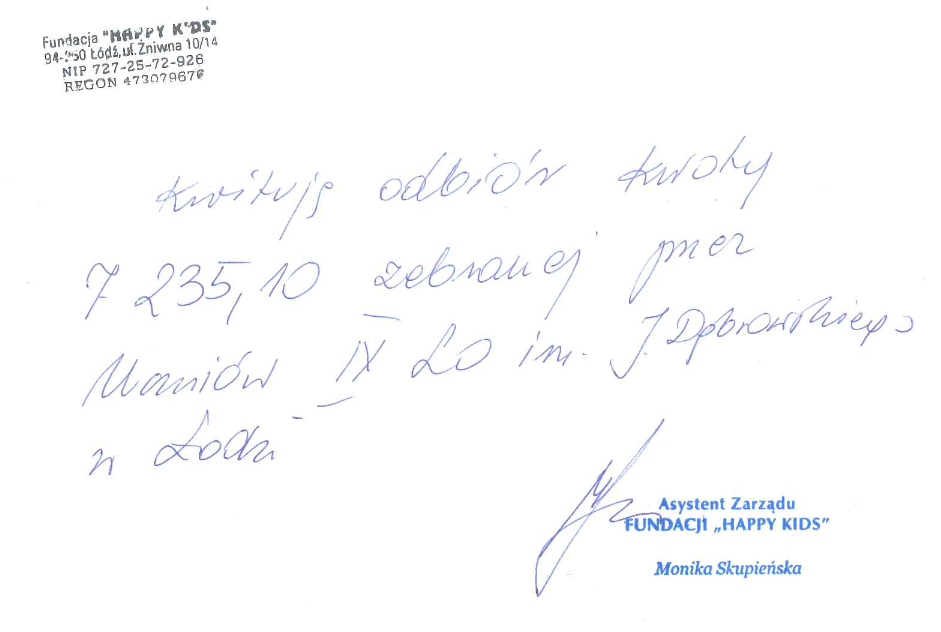 Fundacja "HAPPY KIDS"
94-250 Łódź, ul. Żniwna 10/14
NIP 727-25-72-926
REGON 473079676
Kwituję odbiór kwoty
7 235,10 zebranej przez
Uczniów IX LO im. J. Dąbrowskiego
w Łodzi
Asystent Zarządu
FUNDACJI „HAPPY KIDS”
Monika Skupieńska